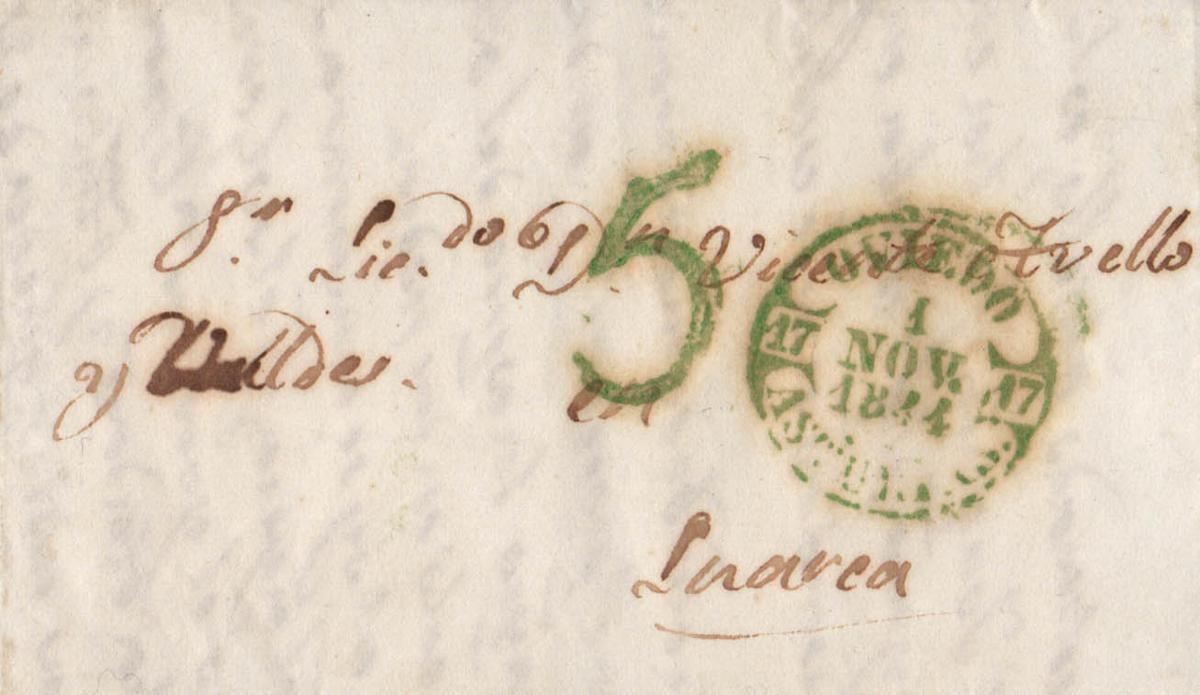 Sr. Lic. do Dn Vicente Trello
y Valldes.
en
Luarca
5
OVIEDO
17 1 17
NOV.
1844
ASTURIAS